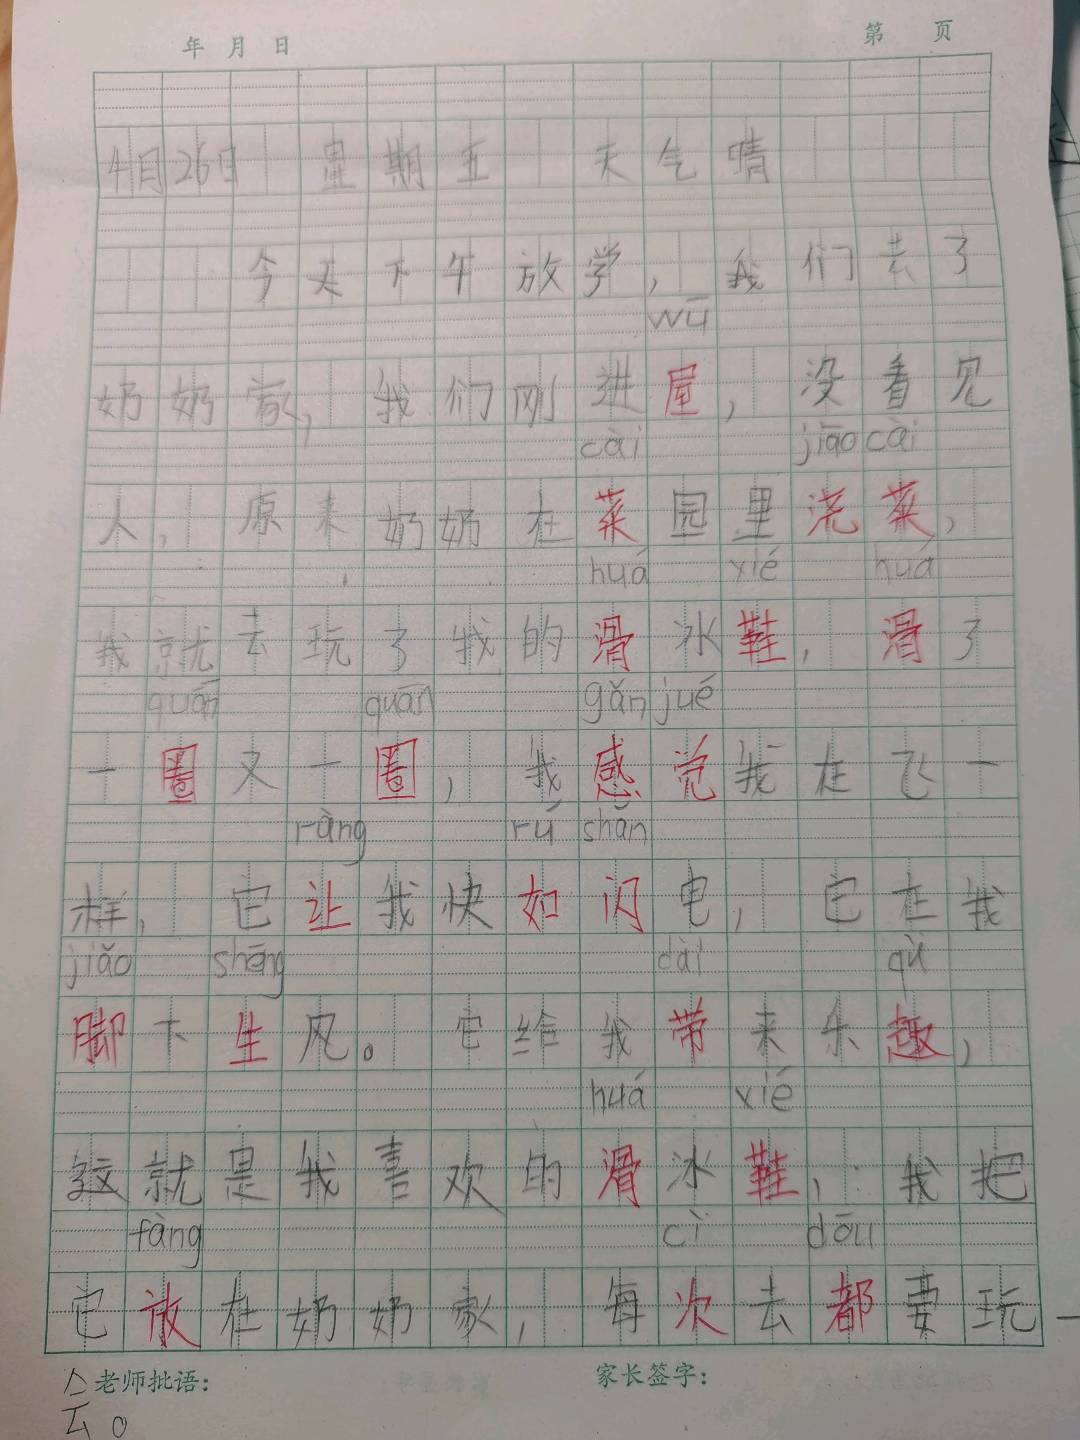 年 月 日 第 页
4月26日 星期五 天气晴
今天下午放学，我们去了
wū
奶奶家，我们刚进屋，没看见
cài jiāo cài
人，原来奶奶在菜园里浇菜，
huá xié huá
我就去玩了我的滑冰鞋，滑了
quān quān gǎn jué
一圈又一圈，我感觉我在飞一
ràng rú shǎn
样，它让我快如闪电，它在我
jiǎo shēng dài qù
脚下生风。它给我带来乐趣，
huá xié
这就是我喜欢的滑冰鞋，我把
fàng cì dōu
它放在奶奶家，每次去都要玩一
会。
老师批语： 家长签字：